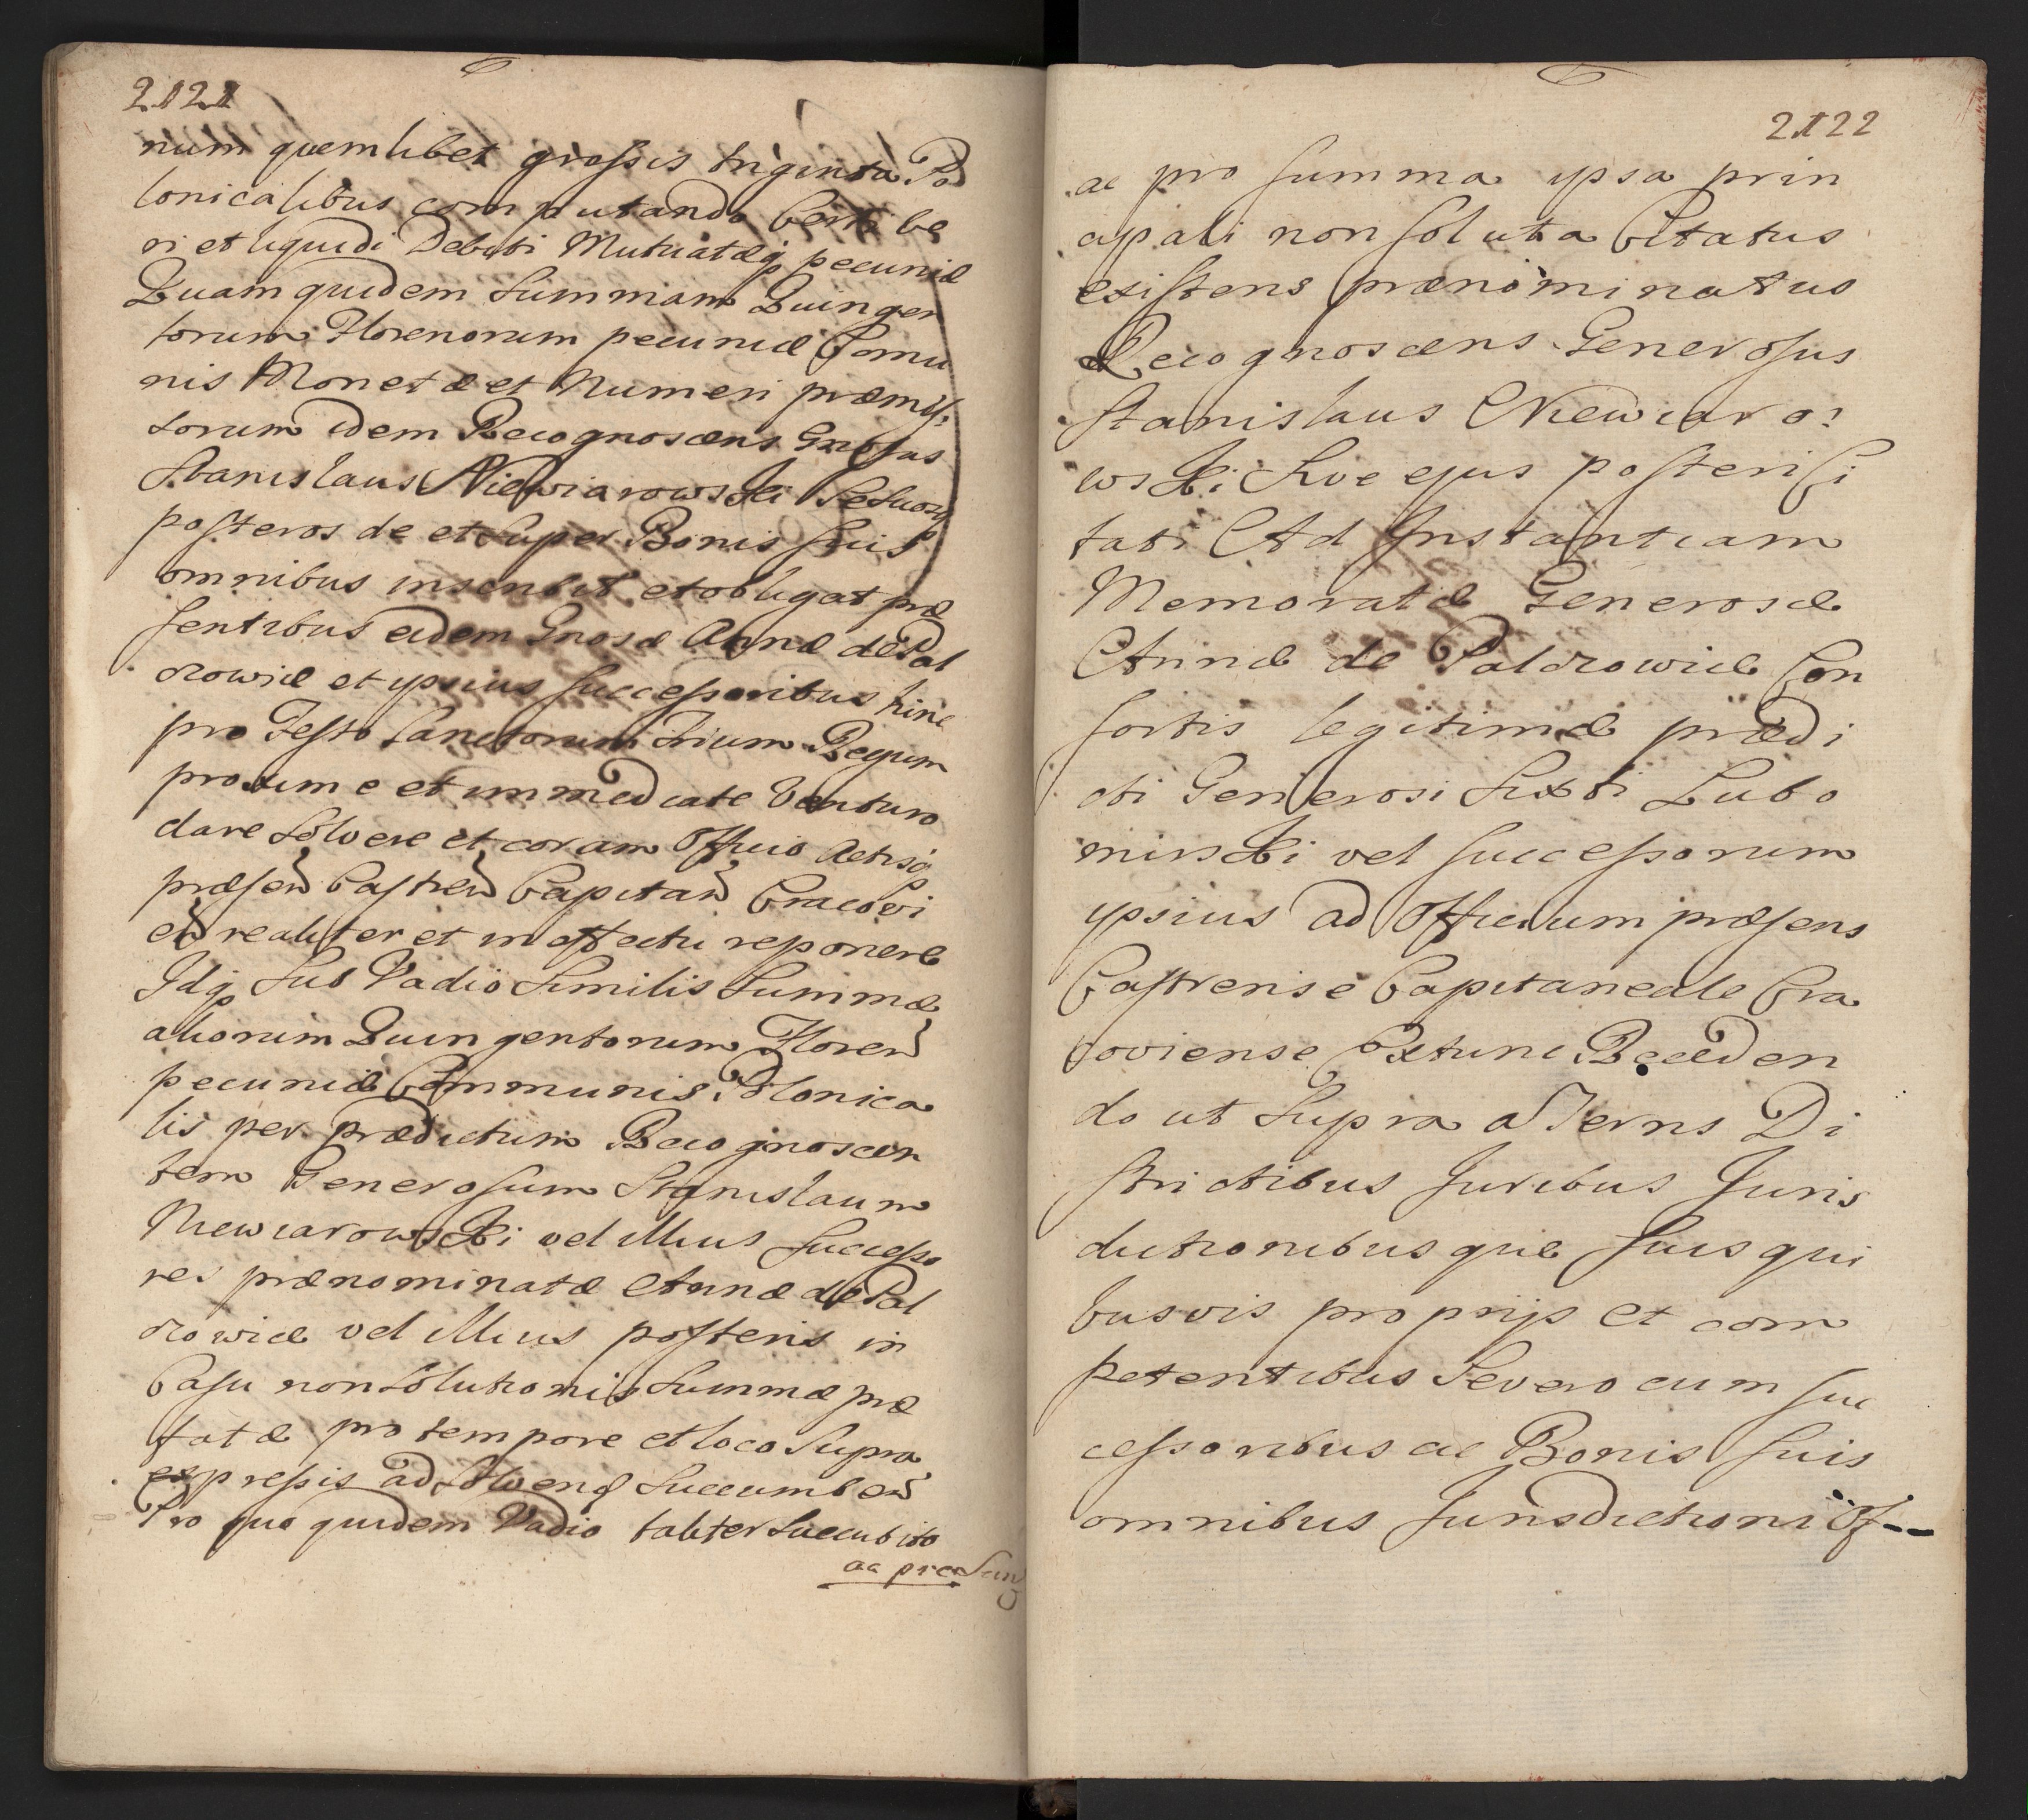 2121
num quemlibet grossis triginta Po
lonicalibus computando Certi ve
ri et liquidi Debiti Mutuatæq pecuniæ
Quam quidem Summam Quingen
torum Florenorum pecuniæ Comu
nis Monetæ et Numeri præmis
sorum idem Recognoscens Gnosus
Stanislaus Niewiarowski Se Suosq
posteros de et Super Bonis suis
omnibus inscribit et obligat præ
sentibus eidem Gnosæ Annæ de Pal
crowiæ et ipsius successoribus hinc
pro Festo Sanctorum Trium Regum
proxime et immediate Venturo
dare Solvere et coram Officio Actisq
præsen Castren Capitan Cracovi
en realiter et in effectu reponere
Idq Sub Vadio Similis Summæ
aliorum Quingentorum Floren
pecuniæ Communis Polonica
lis per prædictum Recognoscen
tem Generosum Stanislaum
Niewiarowski vel illius Successo
res prænominatæ Annæ de Pal
crowiæ vel illius posteris in
Casu non Solutionis Summæ præ
fatæ pro tempore et loco Supra
expressis ad Solvend Succumben
Pro quo quidem Vadio taliter Succubito
ac præ
2122
ac pro summa ipsa prin
cipali non soluta Citatus
existens prænominatus
Recognoscens Generosus
Stanislaus Niewiaro
wski Sive ejus posteri Ci
tati Ad Instantiam
Memoratæ Generosæ
Annæ de Palcrowiæ Con
sortis legitimæ prædi
cti Generosi Sixti Lubo
mirski vel successorum
ipsius ad Officium præsens
Castrense Capitaneale Cra
coviense Extunc Receden
do ut Supra a Terris Di
strictibus Juribus Juris
dictionibusque suis qui
busvis proprijs et com
petentibus Severo cum suc
cessoribus ac Bonis suis
omnibus Jurisdictioni Of--